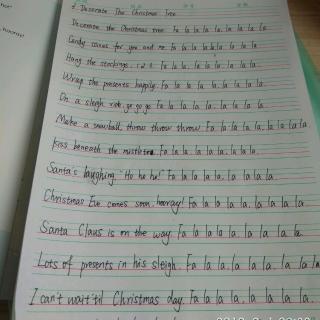 2. Decorate The Christmas Tree
Decorate the Christmas tree Fa la la la la, la la la la.
Candy canes for you and me Fa la la la la, la la la la.
Hang the stockings, 1 2 3. Fa la la la la, la la la la.
Wrap the presents happily. Fa la la la la, la la la la.
On a sleigh ride, go go go Fa la la la la, la la la la.
Make a snowball, throw throw throw Fa la la la la, la la la la
Kiss beneath the mistletoe Fa la la la la, la la la la.
Santa's laughing "Ho ho ho!" Fa la la la la, la la la la.
Christmas Eve comes soon, hooray! Fa la la la la, la la la la.
Santa Claus is on the way Fa la la la la, la la la la
Lots of presents in his sleigh. Fa la la la la, la la la la
I can't wait 'til Christmas day. Fa la la la la, la la la la.